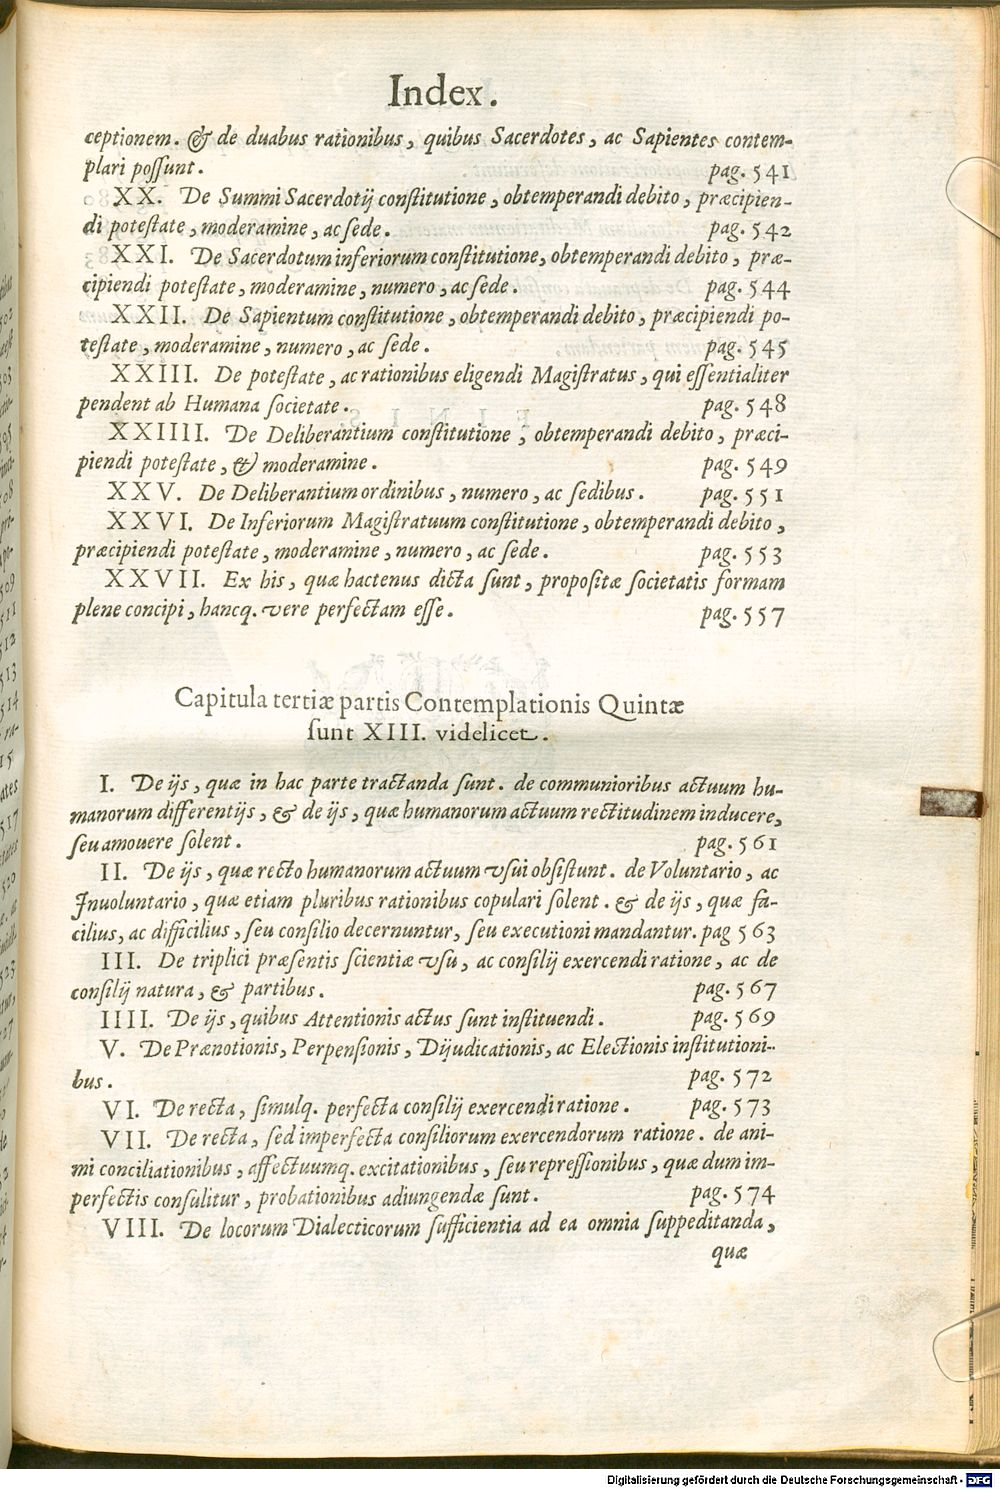 Index.
ceptionem. & de duabus rationibus, quibus Sacerdotes, ac Sapientes contem-
plari possunt. pag. 541
XX. De Summi Sacerdotij constitutione, obtemperandi debito, præcipien-
di potestate, moderamine, ac sede. pag. 542
XXI. De Sacerdotum inferiorum constitutione, obtemperandi debito, præ-
cipiendi potestate, moderamine, numero, ac sede. pag. 544
XXII. De Sapientum constitutione, obtemperandi debito, præcipiendi po-
testate, moderamine, numero, ac sede. pag. 545
XXIII. De potestate, ac rationibus eligendi Magistratus, qui essentialiter
pendent ab Humana societate. pag. 548
XXIIII. De Deliberantium constitutione, obtemperandi debito, præci-
piendi potestate, & moderamine. pag. 549
XXV. De Deliberantium ordinibus, numero, ac sedibus. pag. 551
XXVI. De Inferiorum Magistratuum constitutione, obtemperandi debito,
præcipiendi potestate, moderamine, numero, ac sede. pag. 553
XXVII. Ex his, quæ hactenus dicta sunt, propositæ societatis formam
plene concipi, hancq. vere perfectam esse. pag. 557
Capitula tertiæ partis Contemplationis Quintæ
sunt XIII. videlicet.
I. De ijs, quæ in hac parte tractanda sunt. de communioribus actuum hu-
manorum differentijs, & de ijs, quæ humanorum actuum rectitudinem inducere,
seu amouere solent. pag. 561
II. De ijs, quæ recto humanorum actuum vsui obsistunt. de Voluntario, ac
Inuoluntario, quæ etiam pluribus rationibus copulari solent. & de ijs, quæ fa-
cilius, ac difficilius, seu consilio decernuntur, seu executioni mandantur. pag 563
III. De triplici præsentis scientiæ vsu, ac consilij exercendi ratione, ac de
consilij natura, & partibus. pag. 567
IIII. De ijs, quibus Attentionis actus sunt instituendi. pag. 569
V. De Prænotionis, Perpensionis, Dijudicationis, ac Electionis institutioni-
bus. pag. 572
VI. De recta, simulq. perfecta consilij exercendi ratione. pag. 573
VII. De recta, sed imperfecta consiliorum exercendorum ratione. de ani-
mi conciliationibus, affectuumq. excitationibus, seu repressionibus, quæ dum im-
perfectis consulitur, probationibus adiungendæ sunt. pag. 574
VIII. De locorum Dialecticorum sufficientia ad ea omnia suppeditanda,
quæ
Digitalisierung gefördert durch die Deutsche Forschungsgemeinschaft - DFG